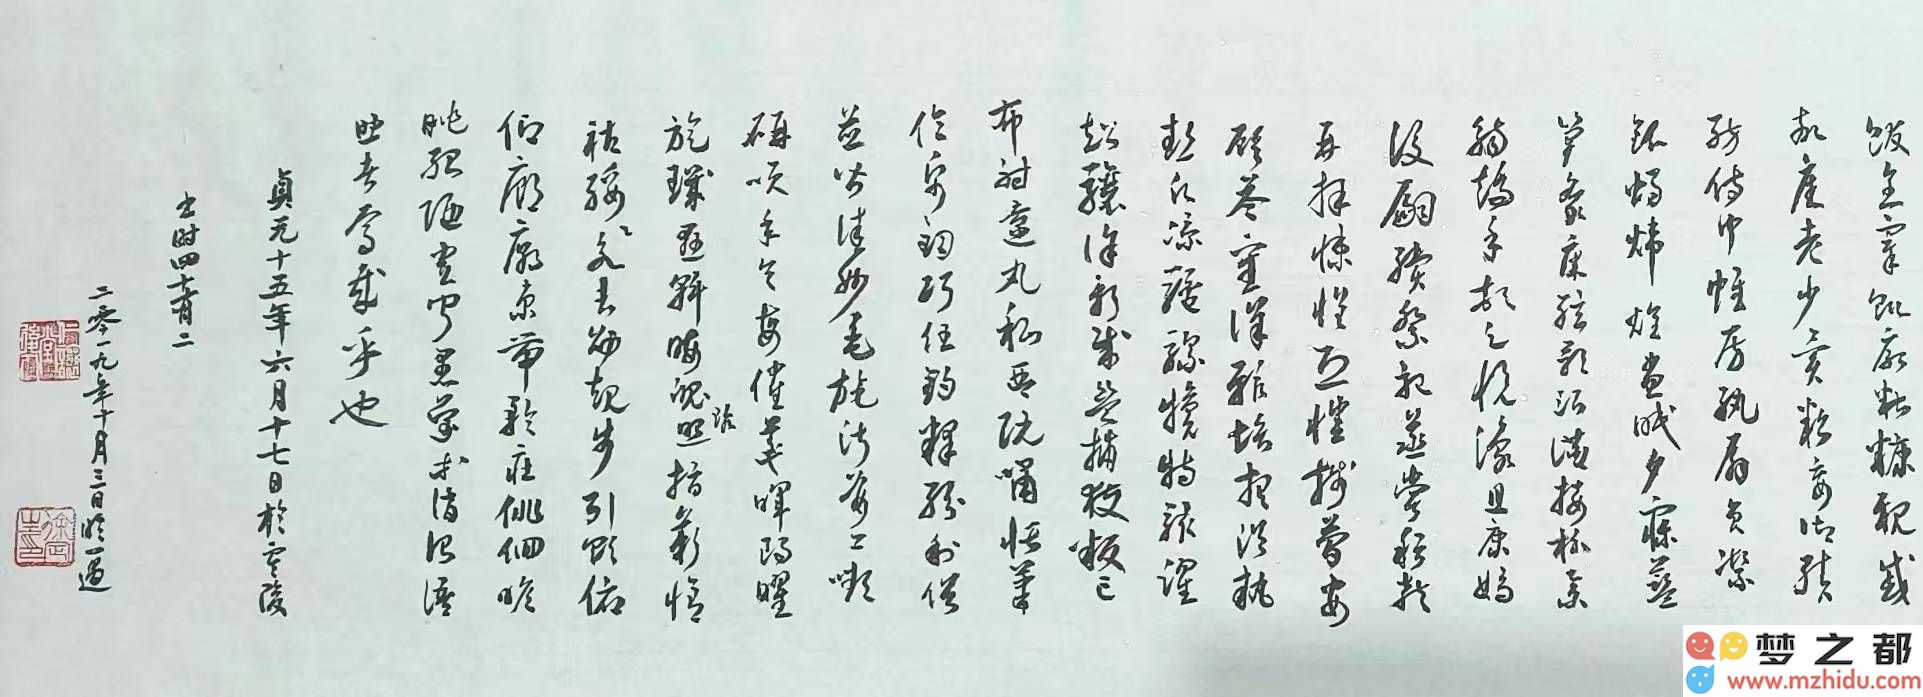 飫烹宰飢厭糟糠親戚
故舊老少異粮妾御績
紡侍巾帷房紈扇員潔
銀燭煒煌晝眠夕寐藍
笋象床弦歌酒讌接杯舉
觴矯手頓足悅豫且康嫡
後嗣續祭祀蒸嘗稽顙
再拜悚懼恐惶牋簡要
顧答審詳骸垢想浴執
熱願涼驢騾犢特駭躍
超驤誅斬賊盜捕獲叛亡
布射遼丸嵇琴阮嘯恬筆
倫紙鈞巧任釣釋紛利俗
並皆佳妙毛施淑姿工顰
妍笑年矢每催羲暉朗曜
旋璣懸斡晦魄環照指薪脩
祜綏永吉劭矩步引領俯
仰廊廟束帶矜莊徘徊瞻
眺孤陋寡聞愚蒙等誚謂語
助者焉哉乎也
貞元十五年六月十七日於零陵
書時四十有二
二零一九年十月三日臨一過
梦之都
www.mzhidu.com